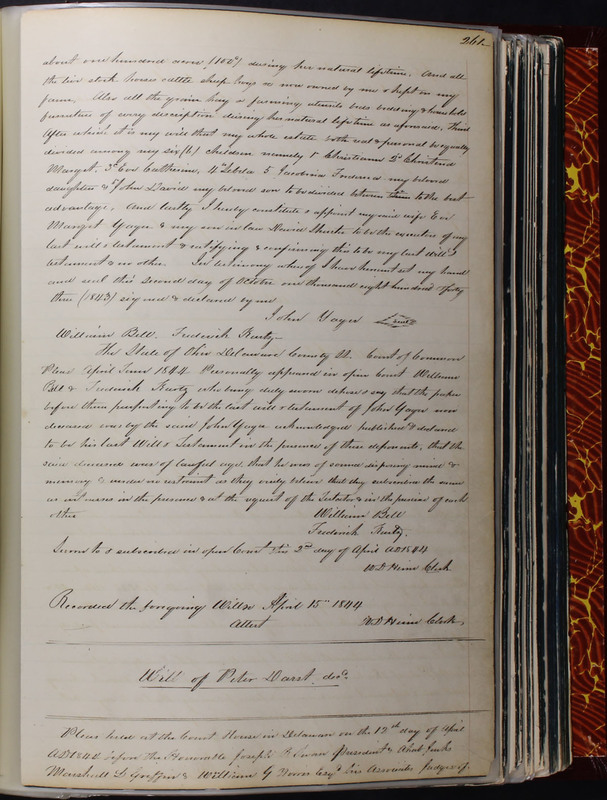 261
about one hundred acres (100) during her natural lifetime. And all
the live stock horses cattle sheep hogs as now owned by me & kept on my
farm. Also all the grain hay & farming utensils beds bedding & household
furniture of every description during her natural lifetime as aforesaid. Third
After which it is my will that my whole estate both real & personal be equally
divided among my six (6) children namely 1st Christiann 2d Christend
Margret. 3d Eve Catherine, 4th 5 Jacobina Frederica my beloved
daughters & 6 John David my beloved son to be divided between them to the best
advantage. And lastly I hereby constitute & appoint my said wife Eve
Margret Yager & my son in law David to be the executors of my
last will & testament & ratifying & confirming this to be my last will &
testament & no other. In testimony whereof I have hereunto set my hand
and seal this second day of October one thousand eight hundred & forty
three (1843) signed & declared by me
John Yager seal
William Bell. Frederick
The State of Ohio Delaware County SS. Court of Common
Pleas April Term 1844. Personally appeared in open Court William
Bell & Frederick who being duly sworn depose & say that the paper
before them purporting to be the last will & testament of John Yager now
deceased was by the said John Yager acknowledged published & declared
to be his last Will & Testament in the presence of these deponents, that the
said deceased was of lawful age, that he was of sound disposing mind &
memory & under no restraint as they verily believe that they subscribed the same
as witnesses in the presence & at the request of the Testator & in the presence of each
other
William Bell
Frederick
Sworn to & subscribed in open Court this 2nd day of April AD 1844
W.D. Heim Clerk
Recorded the foregoing Will April 15th 1844
Attest W.D. Heim Clerk
Will of Peter Darst decd.
Pleas held at the Court House in Delaware on the 12th day of April
AD 1844 before the Honorable Joseph R. Swan President &
Marshall L. Griffin & William G Esqrs. his Associate Judges of